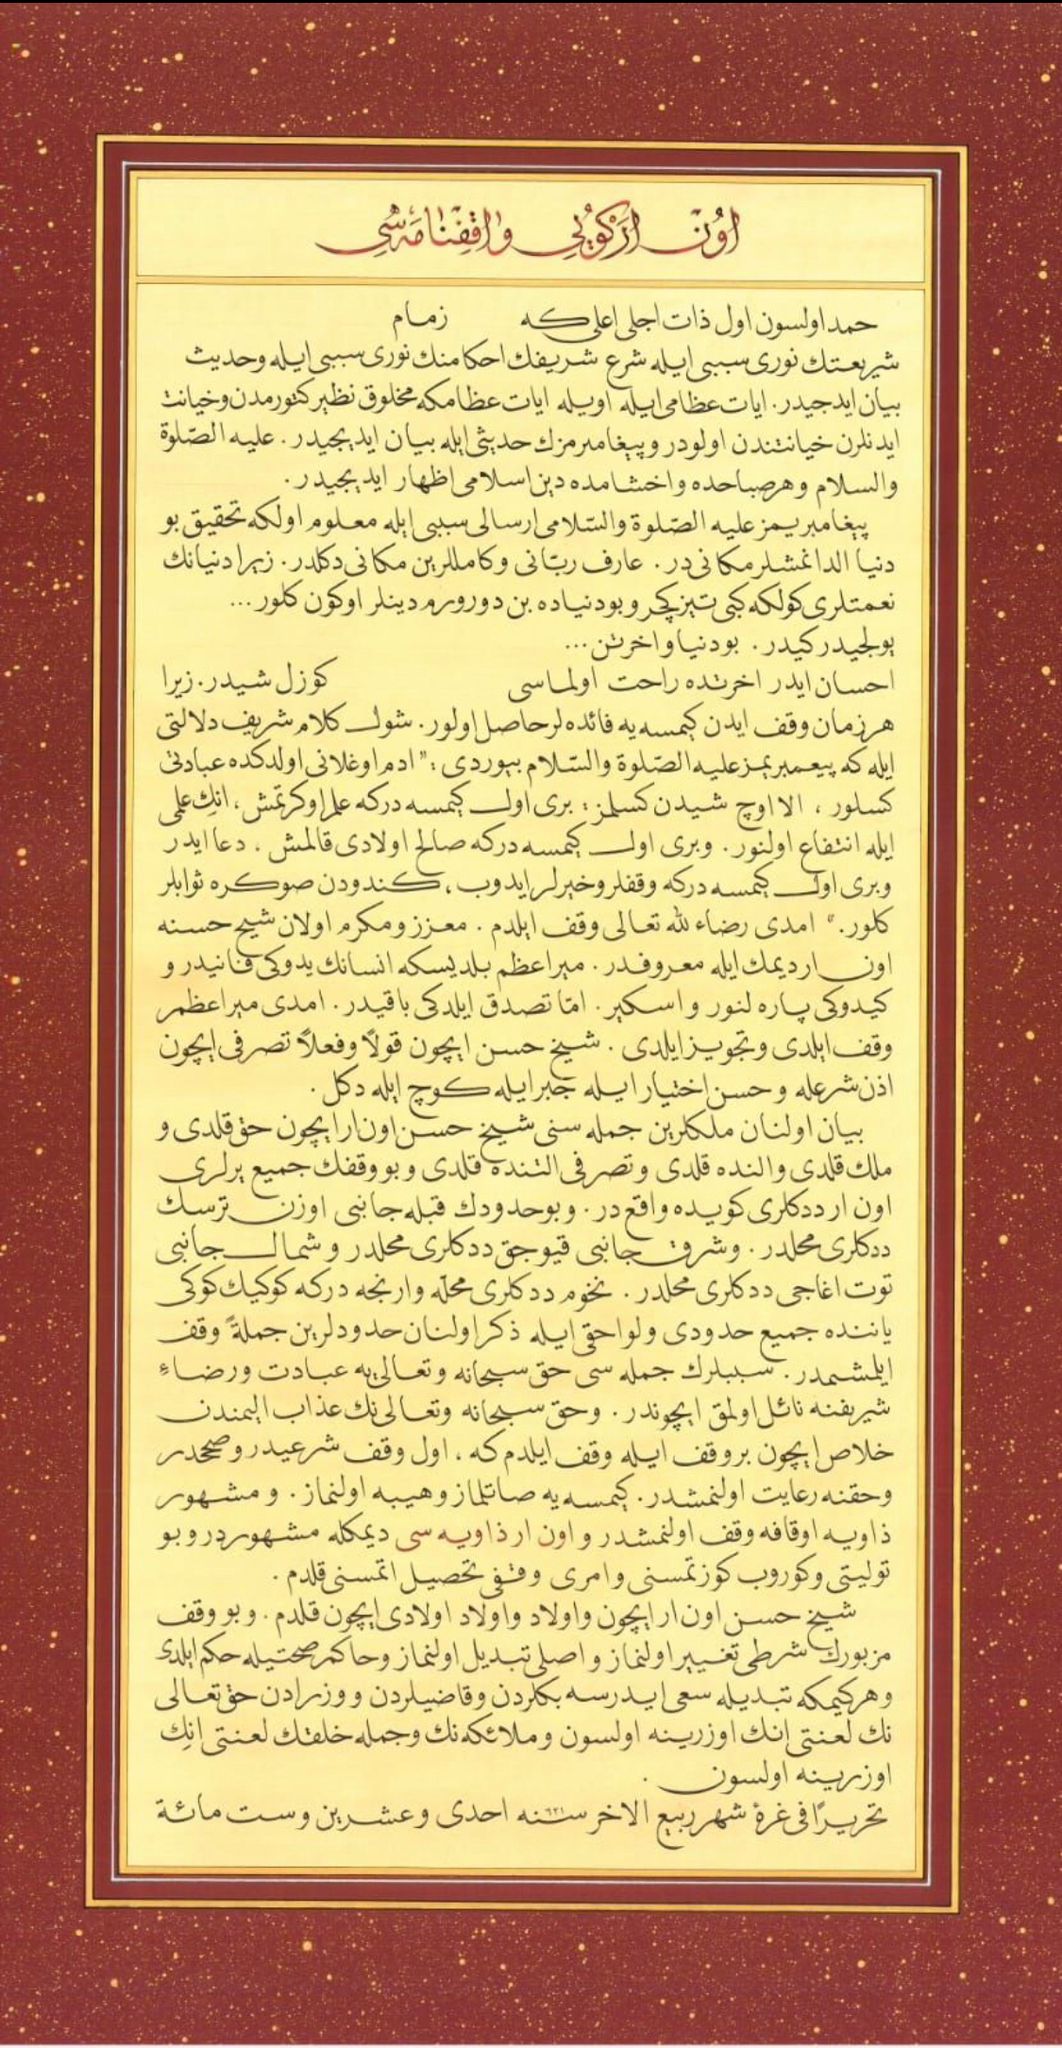 اوُنْ اَرْكوُيِي واقِفْنامَه‌سِي
حمد اولسون اول ذات اجلی اعلی که زمام
شریعتك نوری سببی ایله شرع شریفك احکامنك نوری سببی ایله وحدیث
بیان ایدجیدر. ایات عظامی ایله اویله ایات عظامکه مخلوق نظیر کتورمدن وخیانت
ایدنلرن خیانتندن اولودر وپیغامبرمزك حدیثی ایله بیان ایدیجیدر. علیه الصّلوة
والسلام وهر صباحده واخشامده دین اسلامی اظهار ایدیجیدر.
پیغامبریمز علیه الصّلوة والسّلامی ارسالی سببی ایله معلوم اولکه تحقیق بو
دنیا الدانمشلر مکانی در. عارف ربّانی وکامللرین مکانی دکلدر. زیرا دنیانك
نعمتلری کولکه کبی تیز کچر وبو دنیاده بن دورورم دینلر اوکون کلور...
یولجیدر کیدر. بو دنیا واخرتن...
احسان ایدر اخرتده راحت اولماسی کوزل شیدر. زیرا
هر زمان وقف ایدن کیمسه‌یه فائده‌لر حاصل اولور. شول کلام شریف دلالتی
ایله که پیغمبریمز علیه الصّلوة والسّلام بیوردی: "ادم اوغلانی اولدکده عبادتی
کسلور، الا اوچ شیدن کسلمز: بری اول کیمسه‌درکه علم اوکرتمش، انك علمی
ایله انتفاع اولنور. وبری اول کیمسه‌درکه صالح اولادی قالمش، دعا ایدر
وبری اول کیمسه‌درکه وقفلر وخیرلر ایدوب، کندودن صوکره ثوابلر
کلور." امدی رضاء لله تعالی وقف ایلدم. معزز ومکرم اولان شیخ حسنه
اون ار دیمك ایله معروفدر. میراعظم بلدیسکه انسانك یدوکی فانیدر و
کیدوکی پاره‌لنور واسکیر. امّا تصدق ایلدکی باقیدر. امدی میراعظم
وقف ایلدی وتجویز ایلدی. شیخ حسن ایچون قولاً وفعلاً تصرفی ایچون
اذن شرعله وحسن اختیار ایله جبر ایله کوچ ایله دکل.
بیان اولنان ملکلرین جمله‌سنی شیخ حسن اون ار ایچون حق قلدی و
ملك قلدی والنده قلدی وتصرفی التنده قلدی وبو وقفك جمیع یرلری
اون ار ددکلری کویده واقع در. وبو حدودك قبله جانبی اوزن ترسك
ددکلری محلدر. وشرق جانبی قیوجق ددکلری محلدر وشمال جانبی
توت اغاجی ددکلری محلدر. تخوم ددکلری محلّه وارنجه درکه کوکیك کوکی
یاننده جمیع حدودی ولواحقی ایله ذکر اولنان حدودلرین جملةً وقف
ایلمشمدر. سببلرك جمله‌سی حق سبحانه وتعالی‌یه عبادت ورضاء
شریفنه نائل اولمق ایچوندر. وحق سبحانه وتعالی‌نك عذاب الیمندن
خلاص ایچون بر وقف ایله وقف ایلدم که، اول وقف شرعیدر وصحیحدر
وحقنه رعایت اولنمشدر. کیمسه‌یه صاتلماز وهیبه اولنماز. ومشهور
ذاویه اوقافه وقف اولنمشدر واون ار ذاویه‌سی دیمکله مشهوردر وبو
تولیتی وکوروب کوزتمسنی وامری وقفی تحصیل اتمسنی قلدم.
شیخ حسن اون ار ایچون واولاد واولاد اولادی ایچون قلدم. وبو وقف
مزبورك شرطی تغییر اولنماز واصلی تبدیل اولنماز وحاکم صحتیله حکم ایلدی
وهر کیمکه تبدیله سعی ایدرسه بکلردن وقاضیلردن ووزرادن حق تعالی
نك لعنتی انك اوزرینه اولسون وملائکه‌نك وجمله خلقك لعنتی انك
اوزرینه اولسون.
تحریرًا فی غرۀ شهر ربیع الاخر سنه ٦٢١ احدی وعشرین وست مائة